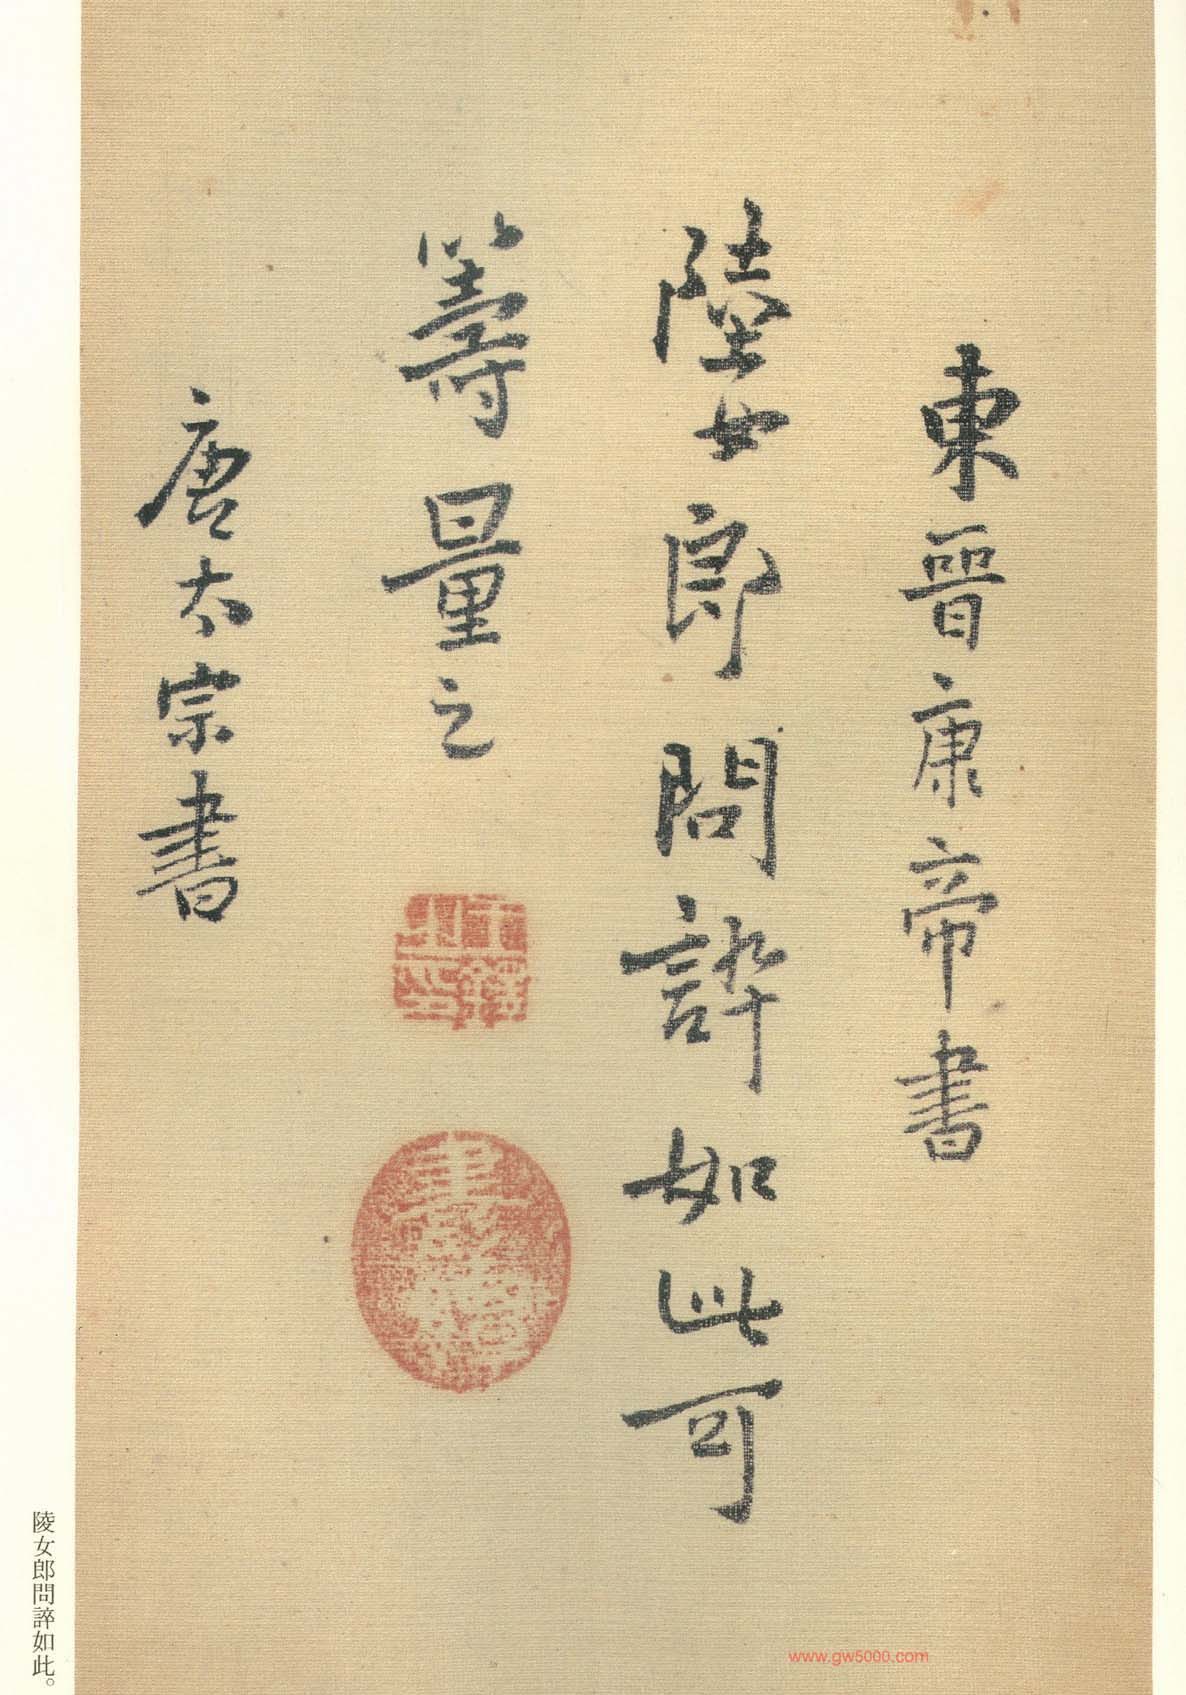 東晉康帝書
陸女郎問誶如此可
籌量之
唐太宗書
陵女郎問誶如此。
www.gw5000.com